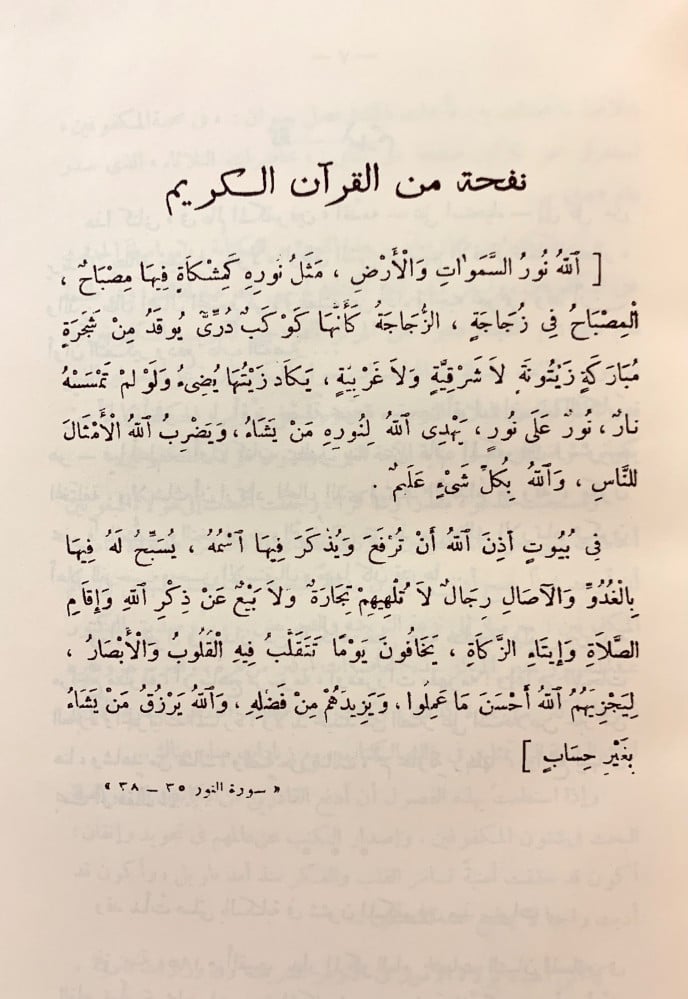 نفحة من القرآن الكريم
[ ٱللهُ نُورُ السَّمَوَاتِ وَالْأَرْضِ ، مَثَلُ نُورِهِ كَمِشْكَاةٍ فِيهَا مِصْبَاحٌ ،
ٱلْمِصْبَاحُ فِي زُجَاجَةٍ ، الزُّجَاجَةُ كَأَنَّهَا كَوْكَبٌ دُرِّيٌّ يُوقَدُ مِنْ شَجَرَةٍ
مُبَارَكَةٍ زَيْتُونَةٍ لاَ شَرْقِيَّةٍ وَلاَ غَرْبِيَّةٍ ، يَكَادُ زَيْتُهَا يُضِيءُ وَلَوْ لَمْ تَمْسَسْهُ
نارٌ ، نُورٌ عَلَى نُورٍ ، يَهْدِى ٱللهُ لِنُورِهِ مَنْ يَشَاءُ ، وَيَضْرِبُ ٱللهُ الْأَمْثَالَ
للنَّاسِ ، وَٱللهُ بِكُلِّ شَيْءٍ عَلِيمٌ .
فِي بُيُوتٍ أَذِنَ ٱللهُ أَنْ تُرْفَعَ وَيُذْكَرَ فِيهَا ٱسْمُهُ ، يُسَبِّحُ لَهُ فِيهَا
بِالْغُدُوِّ وَالآصَالِ رِجَالٌ لاَ تُلْهِيهِمْ تِجَارَةٌ وَلاَ بَيْعٌ عَنْ ذِكْرِ ٱللهِ وَإِقَامِ
الصَّلاَةِ وَإِيتَاءِ الزَّكَاةِ ، يَخَافُونَ يَوْمًا تَتَقَلَّبُ فِيهِ الْقُلُوبُ وَالْأَبْصَارُ ،
لِيَجْزِيَهُمُ ٱللهُ أَحْسَنَ مَا عَمِلُوا ، وَيَزِيدَهُمْ مِنْ فَضْلِهِ ، وَٱللهُ يَرْزُقُ مَنْ يَشَاءُ
بِغَيْرِ حِسَابٍ ]
« سورة النور ٣٥ – ٣٨ »